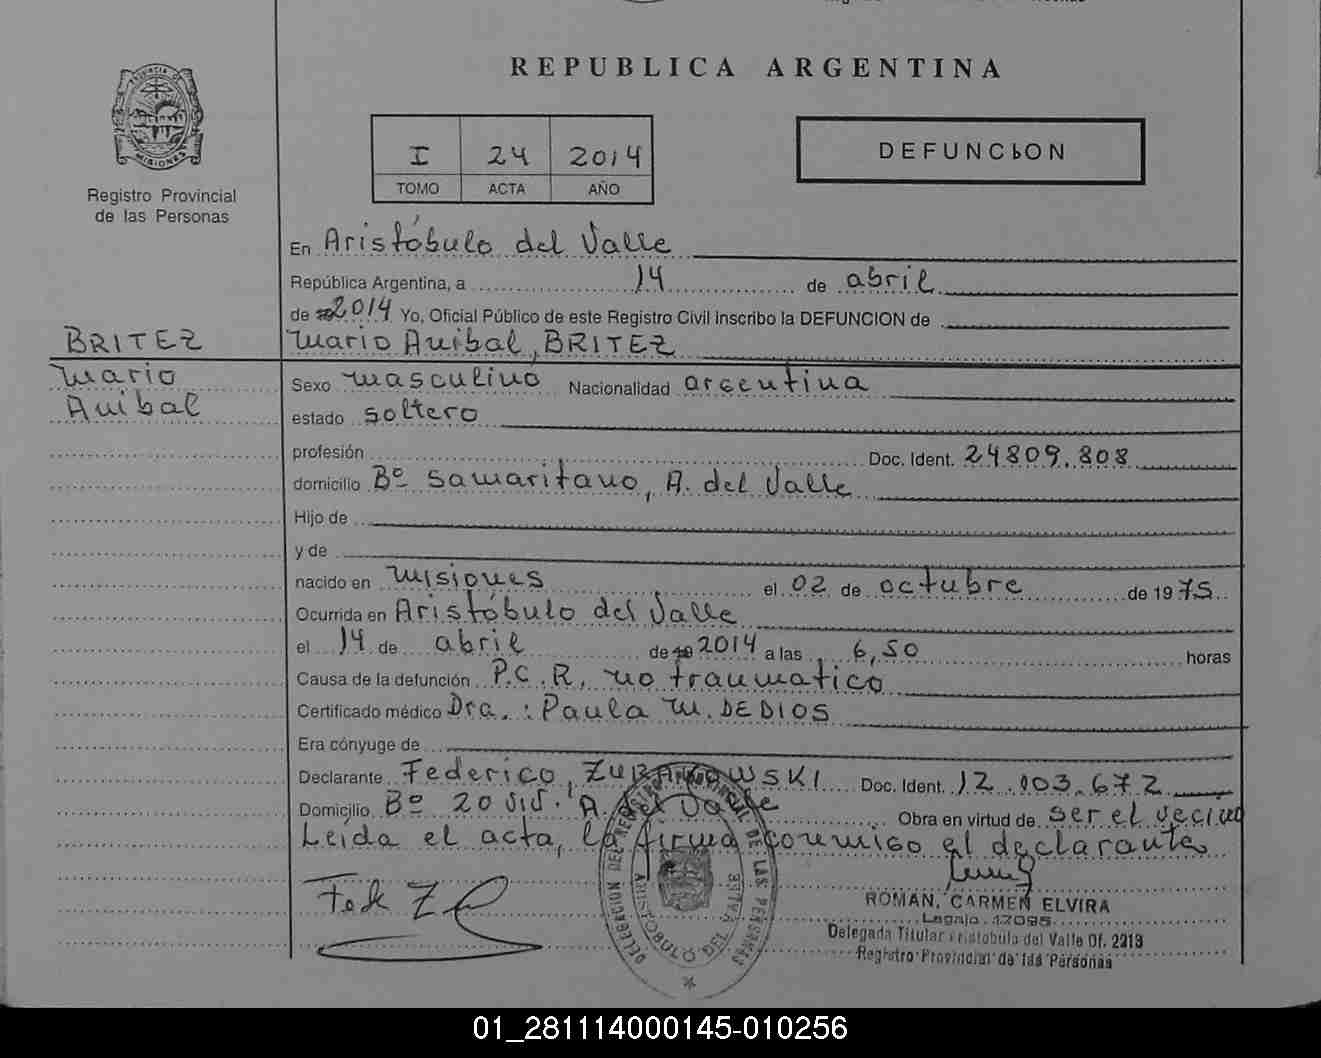 REPUBLICA ARGENTINA
PROVINCIA DE MISIONES
Registro Provincial
de las Personas
I 24 2014
TOMO ACTA AÑO
DEFUNCION
En Aristóbulo del Valle
República Argentina, a 14 de abril
de 2014 Yo, Oficial Público de este Registro Civil inscribo la DEFUNCION de
BRITEZ
Mario
Anibal
Mario Anibal, BRITEZ
Sexo masculino Nacionalidad argentina
estado soltero
profesión Doc. Ident. 24809.808
domicilio Bº Samaritano, A. del Valle
Hijo de
y de
nacido en Misiones el 02 de octubre de 1975
Ocurrida en Aristóbulo del Valle
el 14 de abril de 2014 a las 6,50 horas
Causa de la defunción P.C.R. no traumatico
Certificado médico Dra.: Paula M. DEDIOS
Era cónyuge de
Declarante Federico, ZURAKOWSKI Doc. Ident. 12.003.672
Domicilio Bº 20 A. del Valle Obra en virtud de ser el vecino
Leída el acta, la firma conmigo el declarante
Fede Z
ROMAN, CARMEN ELVIRA
Legajo 12095
Delegada Titular Aristobulo del Valle Of. 2213
Registro Provincial de las Personas
DELEGACION DEL REGISTRO PROVINCIAL DE LAS PERSONAS
ARISTOBULO DEL VALLE
01_281114000145-010256